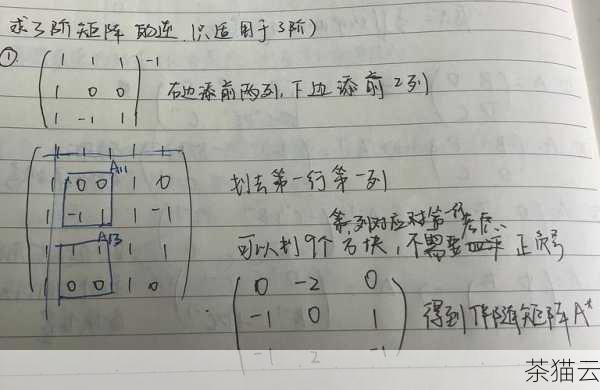 求3阶矩阵的逆(只适用于3阶)
① ( 1 1 1 ) -1
1 0 0 右边添前两列,下边添前2列
1 -1 1
1 1 1 1 1
1 0 0 1 0 A11 划去第一行第一列
1 -1 1 1 -1 第一列对应第一行
1 1 1 1 1 A13 可以划9个方块,不需要 正负号
1 0 0 1 0
0 -2 0
-1 0 1 得到伴随矩阵A*
-1 2 -1
茶猫云